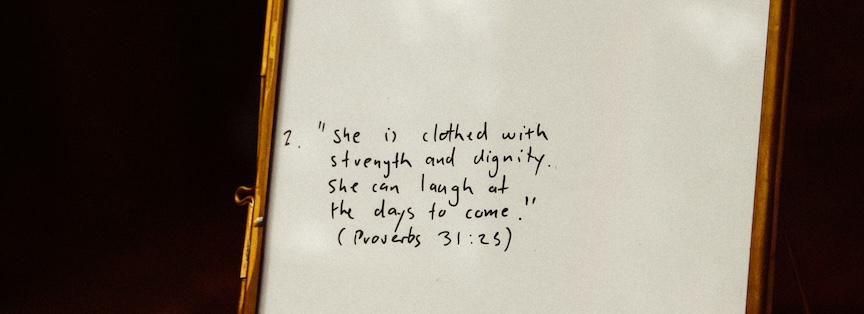 2. "She is clothed with
strength and dignity.
She can laugh at
the days to come."
(Proverbs 31:25)